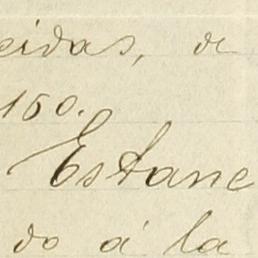 eidas, de
150.
Estanc
do á la